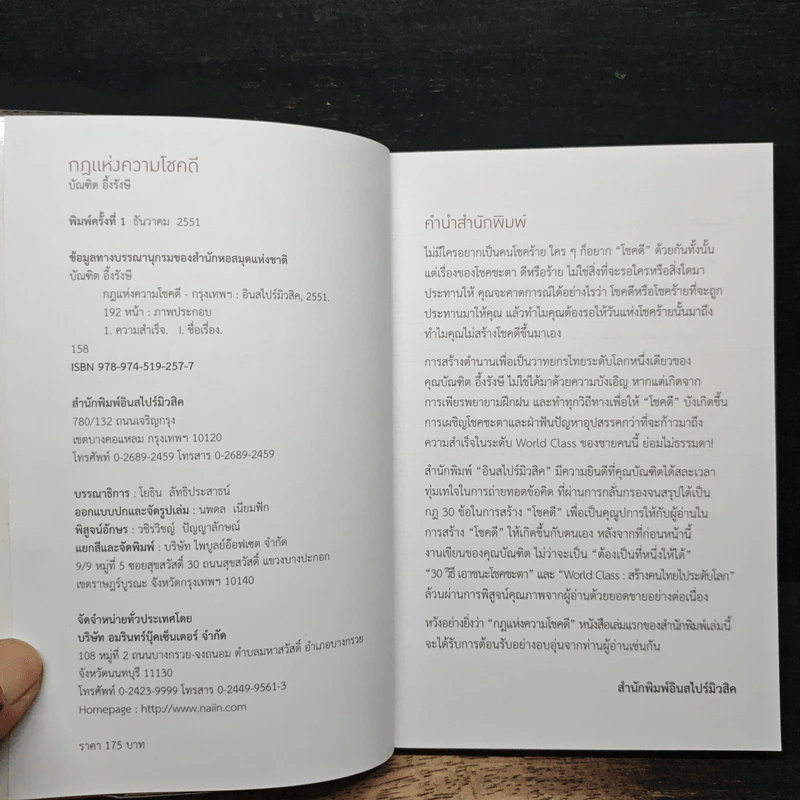 กฎแห่งความโชคดี
บัณฑิต อึ้งรังษี
พิมพ์ครั้งที่ 1 ธันวาคม 2551
ข้อมูลทางบรรณานุกรมของสำนักหอสมุดแห่งชาติ
บัณฑิต อึ้งรังษี
กฎแห่งความโชคดี - กรุงเทพฯ : อินสไปร์มิวสิค, 2551.
192 หน้า : ภาพประกอบ
1. ความสำเร็จ. I. ชื่อเรื่อง.
158
ISBN 978-974-519-257-7
สำนักพิมพ์อินสไปร์มิวสิค
780/132 ถนนเจริญกรุง
เขตบางคอแหลม กรุงเทพฯ 10120
โทรศัพท์ 0-2689-2459 โทรสาร 0-2689-2459
บรรณาธิการ : โยธิน ลัทธิประสาธน์
ออกแบบปกและจัดรูปเล่ม : นพดล เนียมฟัก
พิสูจน์อักษร : วชิรวิชญ์ ปัญญาลักษณ์
แยกสีและจัดพิมพ์ : บริษัท ไพบูลย์อ๊อฟเซต จำกัด
9/9 หมู่ที่ 5 ซอยสุขสวัสดิ์ 30 ถนนสุขสวัสดิ์ แขวงบางปะกอก
เขตราษฎร์บูรณะ จังหวัดกรุงเทพฯ 10140
จัดจำหน่ายทั่วประเทศโดย
บริษัท อมรินทร์บุ๊คเซ็นเตอร์ จำกัด
108 หมู่ที่ 2 ถนนบางกรวย-จงถนอม ตำบลมหาสวัสดิ์ อำเภอบางกรวย
จังหวัดนนทบุรี 11130
โทรศัพท์ 0-2423-9999 โทรสาร 0-2449-9561-3
Homepage : http://www.naiin.com
ราคา 175 บาท
คำนำสำนักพิมพ์
ไม่มีใครอยากเป็นคนโชคร้าย ใคร ๆ ก็อยาก “โชคดี” ด้วยกันทั้งนั้น
แต่เรื่องของโชคชะตา ดีหรือร้าย ไม่ใช่สิ่งที่จะรอใครหรือสิ่งใดมา
ประทานให้ คุณจะคาดการณ์ได้อย่างไรว่า โชคดีหรือโชคร้ายที่จะถูก
ประทานมาให้คุณ แล้วทำไมคุณต้องรอให้วันแห่งโชคร้ายนั้นมาถึง
ทำไมคุณไม่สร้างโชคดีขึ้นมาเอง
การสร้างตำนานเพื่อเป็นวาทยกรไทยระดับโลกหนึ่งเดียวของ
คุณบัณฑิต อึ้งรังษี ไม่ใช่ได้มาด้วยความบังเอิญ หากแต่เกิดจาก
การเพียรพยายามฝึกฝน และทำทุกวิถีทางเพื่อให้ “โชคดี” บังเกิดขึ้น
การเผชิญโชคชะตาและฝ่าฟันปัญหาอุปสรรคกว่าที่จะก้าวมาถึง
ความสำเร็จในระดับ World Class ของชายคนนี้ ย่อมไม่ธรรมดา!
สำนักพิมพ์ “อินสไปร์มิวสิค” มีความยินดีที่คุณบัณฑิตได้สละเวลา
ทุ่มเทใจในการถ่ายทอดข้อคิด ที่ผ่านการกลั่นกรองจนสรุปได้เป็น
กฎ 30 ข้อในการสร้าง “โชคดี” เพื่อเป็นคุณูปการให้กับผู้อ่านใน
การสร้าง “โชคดี” ให้เกิดขึ้นกับตนเอง หลังจากที่ก่อนหน้านี้
งานเขียนของคุณบัณฑิต ไม่ว่าจะเป็น “ต้องเป็นที่หนึ่งให้ได้”
“30 วิธี เอาชนะโชคชะตา” และ “World Class : สร้างคนไทยไประดับโลก”
ล้วนผ่านการพิสูจน์คุณภาพจากผู้อ่านด้วยยอดขายอย่างต่อเนื่อง
หวังอย่างยิ่งว่า “กฎแห่งความโชคดี” หนังสือเล่มแรกของสำนักพิมพ์เล่มนี้
จะได้รับการต้อนรับอย่างอบอุ่นจากท่านผู้อ่านเช่นกัน
สำนักพิมพ์อินสไปร์มิวสิค